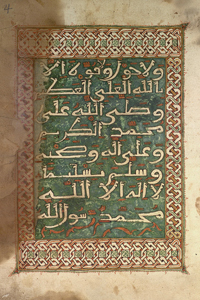 ولا حول ولا قوة الا
بالله العلي العظيم
وصلى الله على
محمد الكريم
وعلى اله وصحبه
وسلم تسليما
لا اله الا الله
محمد رسول الله